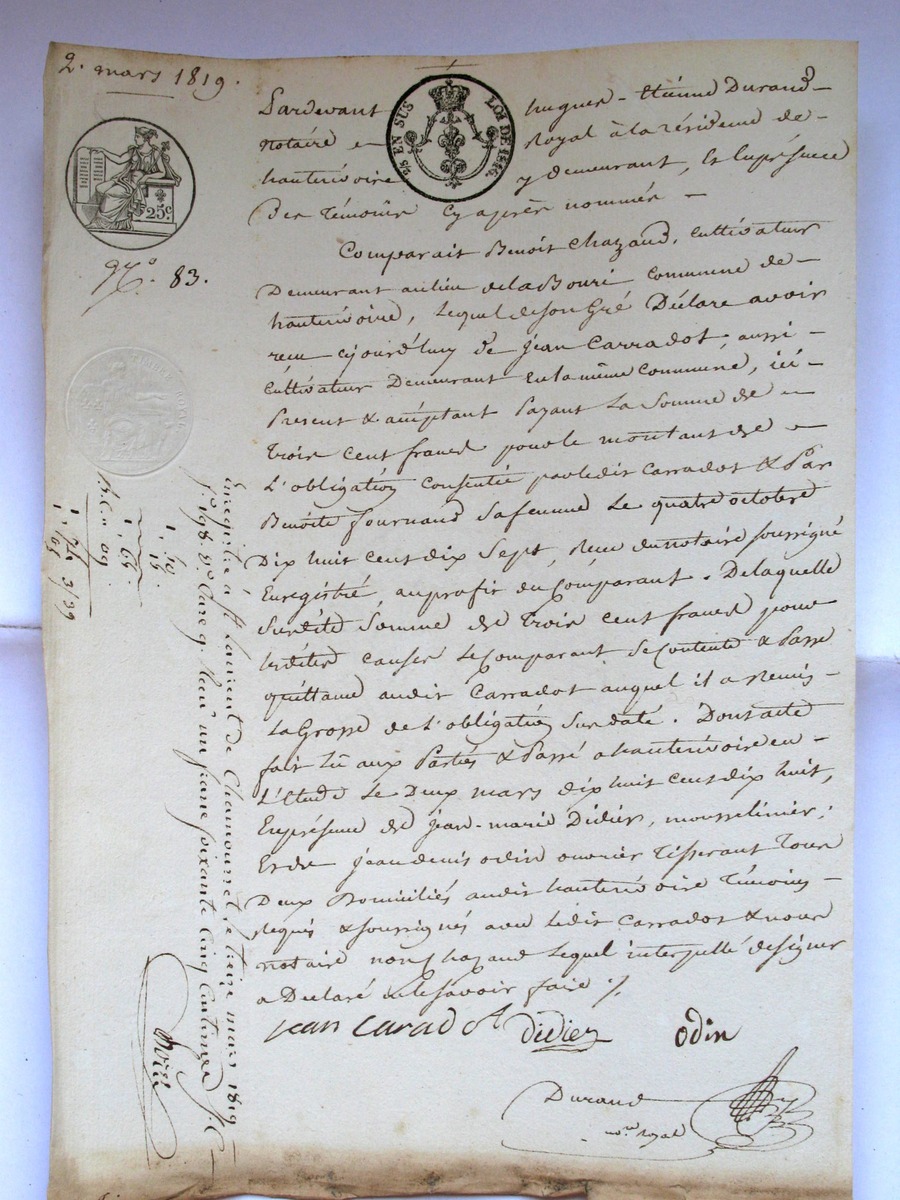 2. mars 1819.
25c
2/5 EN SUS LOI DE 1816.
N.º 83.
Pardevant hugues-Etienne Durand
notaire Royal à la résidence de
hauterivoire y demeurant, En la présence
Des témoins Cy après nommés
Comparait Benoit Chazaud, cultivateur
Demeurant au lieu de la Bouri commune de
hauterivoire, Lequel de son Gré Déclare avoir
recu cejourd'huy de jean Carradot, aussi
cultivateur Demeurant En la même Commune, ici
Present & acceptant Payant La Somme de
trois cent francs pour le montant de
L'obligation consentie par ledit Carradot & Par
Benoite fournand Sa femme Le quatre octobre
Dix huit cent dix Sept, Recu du notaire soussigné
Enregistré, au profit du Comparant. De laquelle
Susdite Somme de trois cent francs pour
susdites causes Le Comparant Se Contente & Passe
quittance audit Carradot auquel il a Remis
La Grosse de L'obligation Sus datée. Dont acte
fait Lu aux Parties & Passé a hauterivoire en
L'étude Le Deux mars dix huit cent dix huit,
En présence de jean-marie Didier, mousselinier,
Et de jean denis odin ouvrier tisserant tous
Deux Domiciliés audit hauterivoire témoins
Requis & soussignés avec ledit Carradot & nous
notaire non chazaud Lequel interpellé de signer
a Declaré ne le savoir faire ./.
jean caradot didier odin
Durand
no.re royal
Enregistré à St Laurent de Chamousset le treize mars 1819
f.º 198. V.º Case 9. Recu un franc soixante cinq centimes